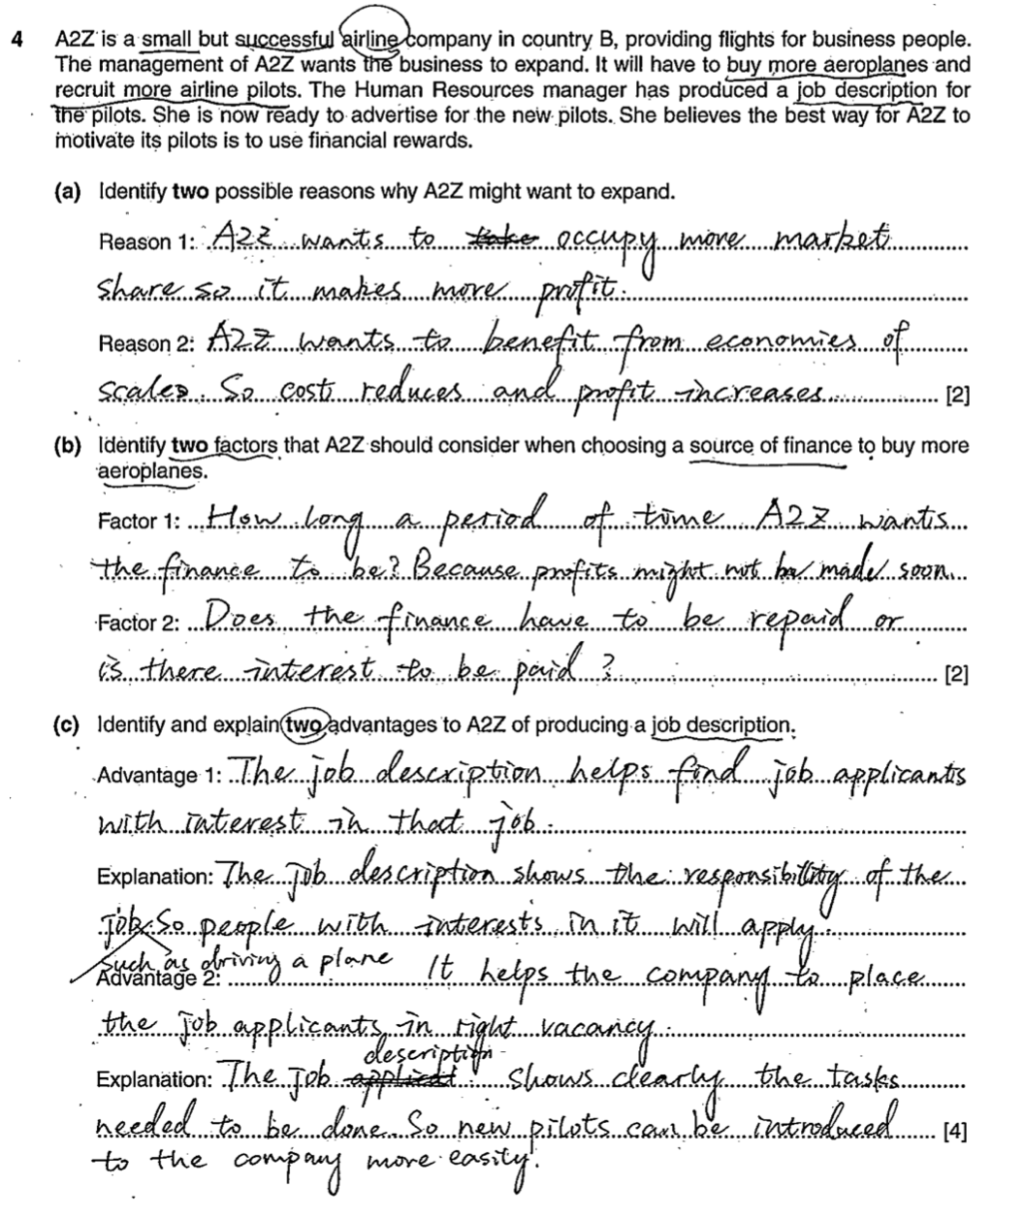 4 A2Z is a small but successful airline company in country B, providing flights for business people.
The management of A2Z wants the business to expand. It will have to buy more aeroplanes and
recruit more airline pilots. The Human Resources manager has produced a job description for
the pilots. She is now ready to advertise for the new pilots. She believes the best way for A2Z to
motivate its pilots is to use financial rewards.
(a) Identify two possible reasons why A2Z might want to expand.
Reason 1: A2Z wants to take occupy more market
share so it makes more profit.
Reason 2: A2Z wants to benefit from economies of
scales. So cost reduces and profit increases. [2]
(b) Identify two factors that A2Z should consider when choosing a source of finance to buy more
aeroplanes.
Factor 1: How long a period of time A2Z wants
the finance to be? Because profits might not be made soon.
Factor 2: Does the finance have to be repaid or
is there interest to be paid? [2]
(c) Identify and explain two advantages to A2Z of producing a job description.
Advantage 1: The job description helps find job applicants
with interest in that job.
Explanation: The job description shows the responsibility of the
job. So people with interests in it will apply.
such as driving a plane
Advantage 2: It helps the company to place
the job applicants in right vacancy.
description
Explanation: The job applicat shows clearly the tasks
needed to be done. So new pilots can be introduced [4]
to the company more easily.